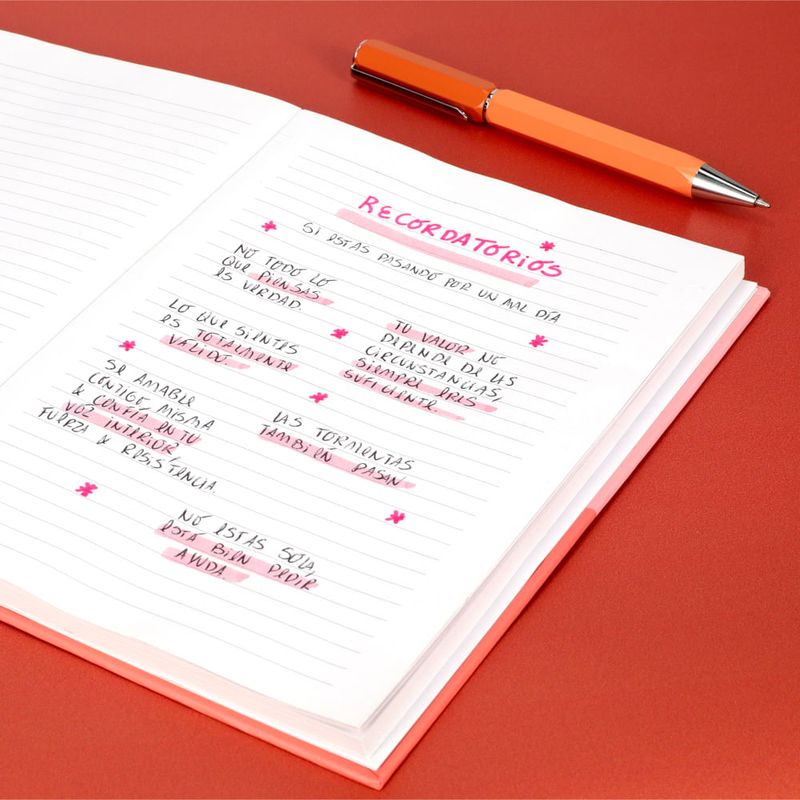 RECORDATORIOS
SI ESTAS PASANDO POR UN MAL DÍA
NO TODO LO
QUE PIENSAS
ES VERDAD.
LO QUE SIENTES
ES TOTALMENTE
VÁLIDO.
TU VALOR NO
DEPENDE DE LAS
CIRCUNSTANCIAS,
SIEMPRE ERES
SUFICIENTE.
SE AMABLE
CONTIGO MISMA
& CONFÍA EN TU
VOZ INTERIOR
FUERZA & RESISTENCIA.
LAS TORMENTAS
TAMBIÉN PASAN
NO ESTAS SOLA,
ESTÁ BIEN PEDIR
AYUDA.